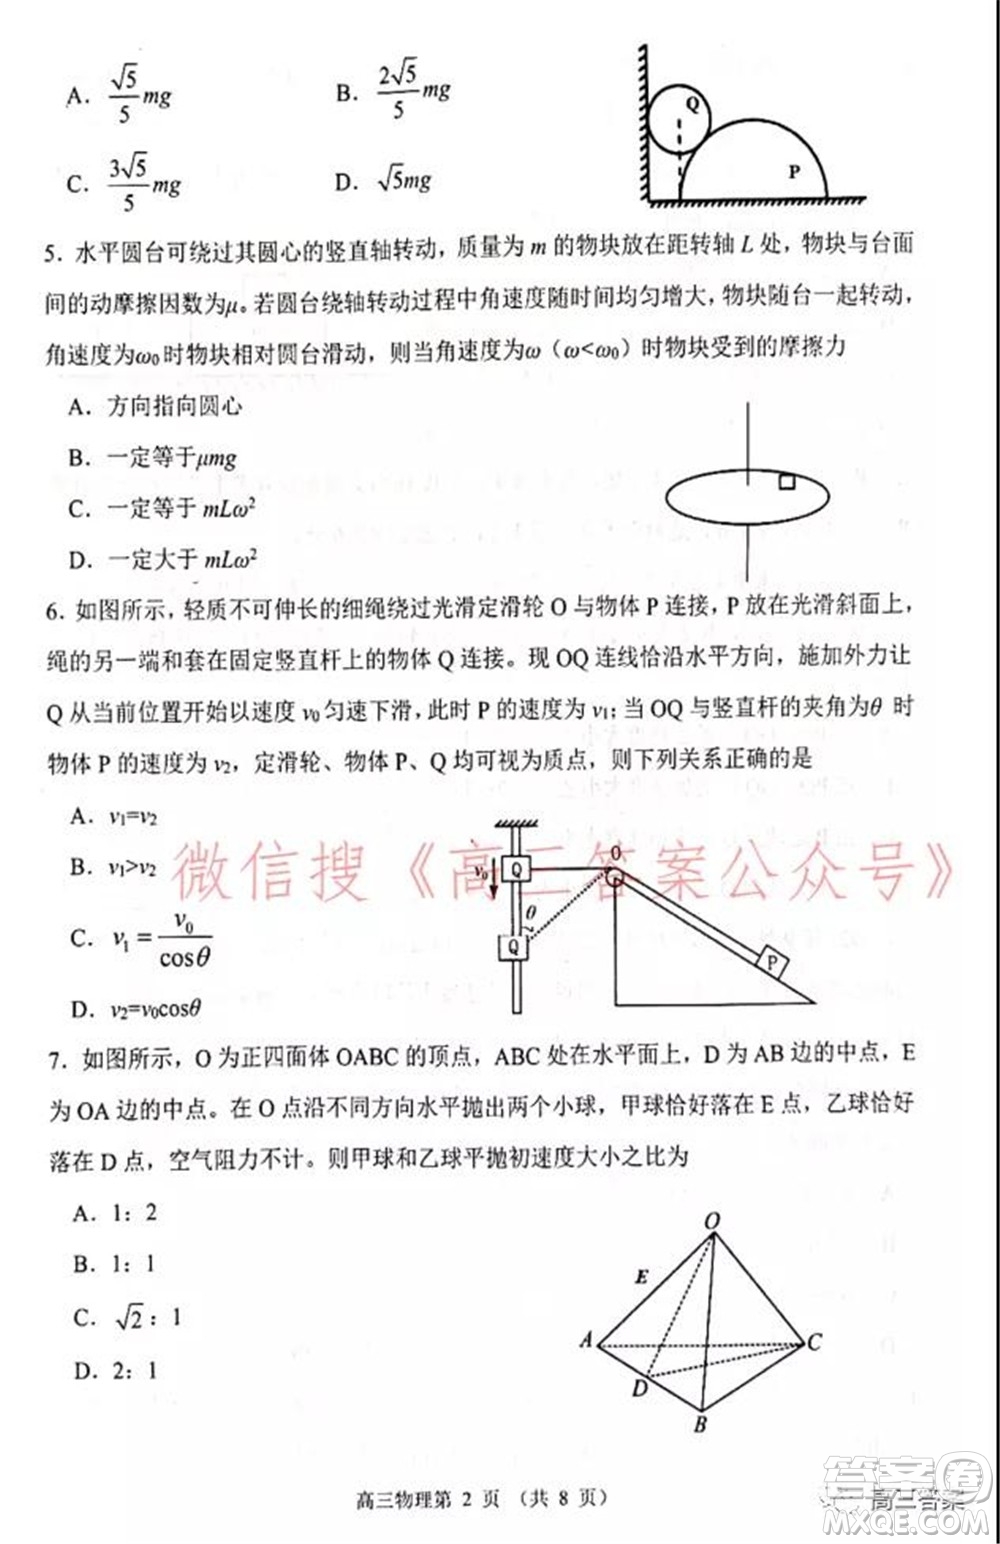 A. √5/5 mg
B. 2√5/5 mg
C. 3√5/5 mg
D. √5mg
Q
P
5. 水平圆台可绕过其圆心的竖直轴转动，质量为 m 的物块放在距转轴 L 处，物块与台面
间的动摩擦因数为μ。若圆台绕轴转动过程中角速度随时间均匀增大，物块随台一起转动，
角速度为ω₀ 时物块相对圆台滑动，则当角速度为ω（ω<ω₀）时物块受到的摩擦力
A．方向指向圆心
B．一定等于μmg
C．一定等于 mLω²
D．一定大于 mLω²
6. 如图所示，轻质不可伸长的细绳绕过光滑定滑轮 O 与物体 P 连接，P 放在光滑斜面上，
绳的另一端和套在固定竖直杆上的物体 Q 连接。现 OQ 连线恰沿水平方向，施加外力让
Q 从当前位置开始以速度 v₀ 匀速下滑，此时 P 的速度为 v₁；当 OQ 与竖直杆的夹角为θ 时
物体 P 的速度为 v₂，定滑轮、物体 P、Q 均可视为质点，则下列关系正确的是
A．v₁=v₂
B．v₁>v₂
C．v₁ = v₀/cosθ
D．v₂=v₀cosθ
v₀
Q
O
θ
Q
P
微信搜《高三答案公众号》
7. 如图所示，O 为正四面体 OABC 的顶点，ABC 处在水平面上，D 为 AB 边的中点，E
为 OA 边的中点。在 O 点沿不同方向水平抛出两个小球，甲球恰好落在 E 点，乙球恰好
落在 D 点，空气阻力不计。则甲球和乙球平抛初速度大小之比为
A．1：2
B．1：1
C．√2：1
D．2：1
O
E
A
C
D
B
高三物理第 2 页 （共 8 页）
答案圈
MXQE.COM
高三答案